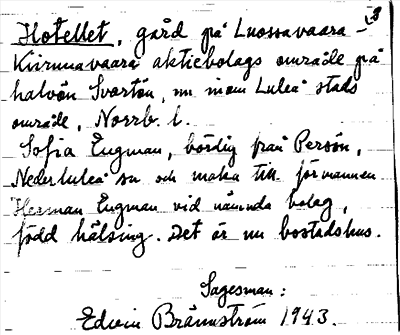 Hotellet, gård på Luossavaara - 3
Kiirunavaara aktiebolags område på
halvön Svartön, nu inom Luleå stads
område, Norrb. l.
Sofia Engman, bördig från Persön,
Nederluleå sn och maka till förmannen
Herman Engman vid nämnda bolag,
född hälsing. Det är nu bostadshus.
Sagesman:
Edvin Brännström 1943.